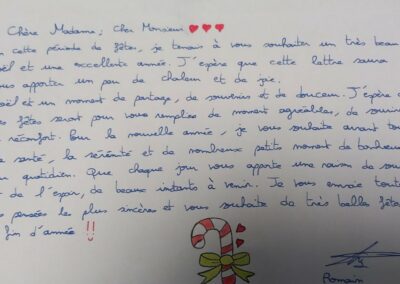 Chère Madame, Cher Monsieur
cette période de fêtes, je tenais à vous souhaiter un très beau
et une excellente année. J'espère que cette lettre saura
apporter un peu de chaleur et de joie.
est un moment de partage, de souvenirs et de douceur. J'espère
fêtes seront pour vous remplies de moment agréables, de
réconfort. Pour la nouvelle année, je vous souhaite avant
santé, la sérénité et de nombreux petits moment de bonheur
quotidien. Que chaque jour vous apporte une raison de
de l'espoir, de beaux instants à venir. Je vous envoie
pensées les plus sincères et vous souhaite de très belles fêtes
fin d'année !!
Romain